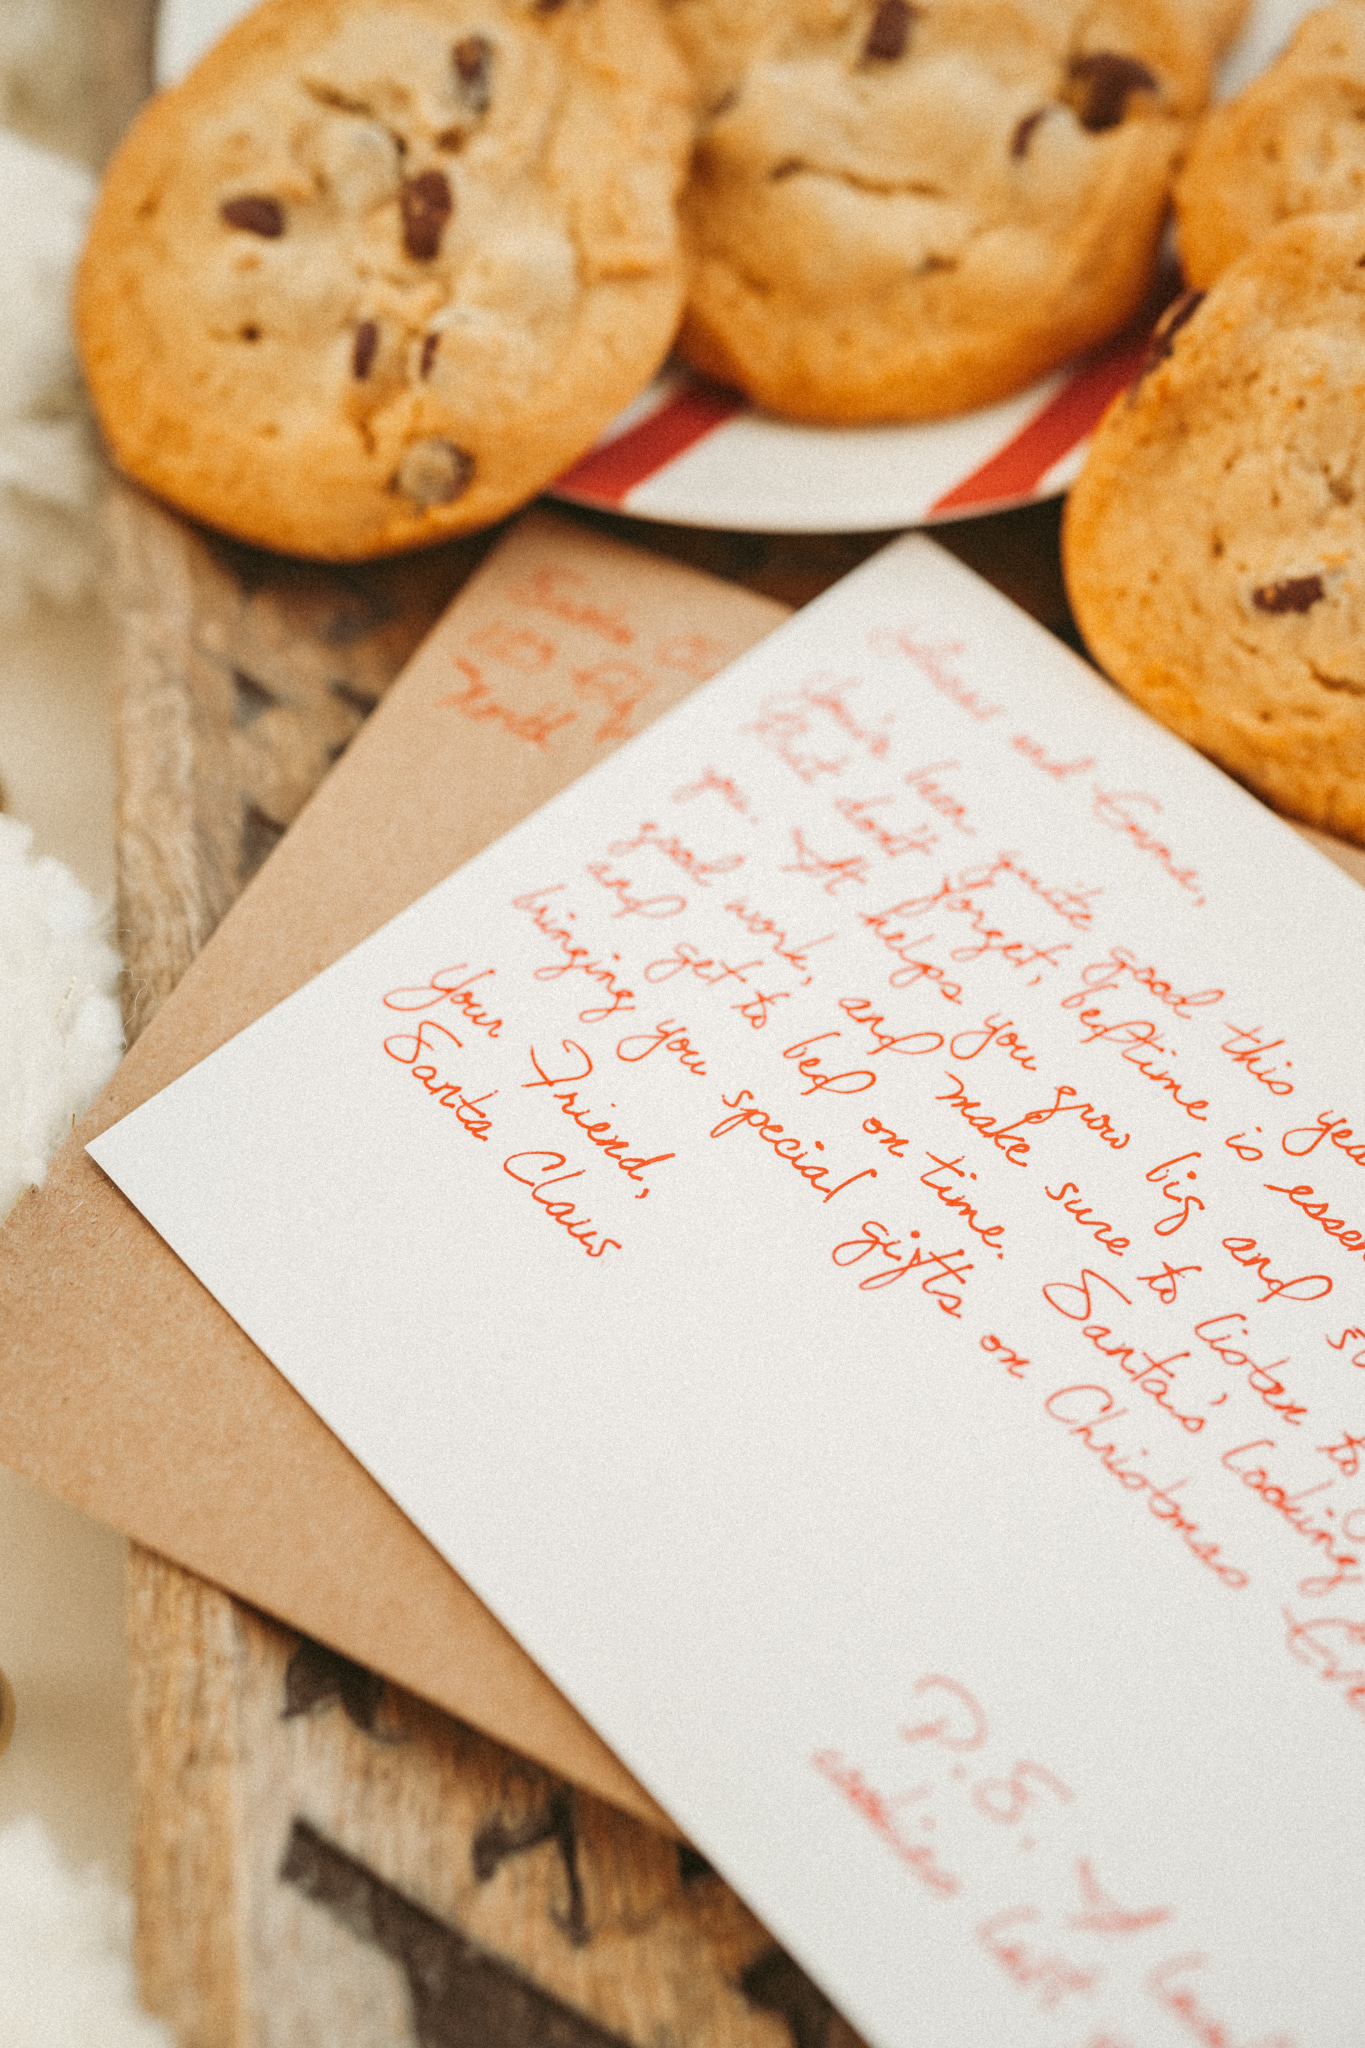 Santa
123
North
and Emma,
You've been quite good this
But don't forget, bedtime is
you. It helps you grow big and
good work, and make sure to listen to
and get to bed on time. Santa's looking
bringing you special gifts on Christmas
Your Friend,
Santa Claus
P.S. I
cookies last